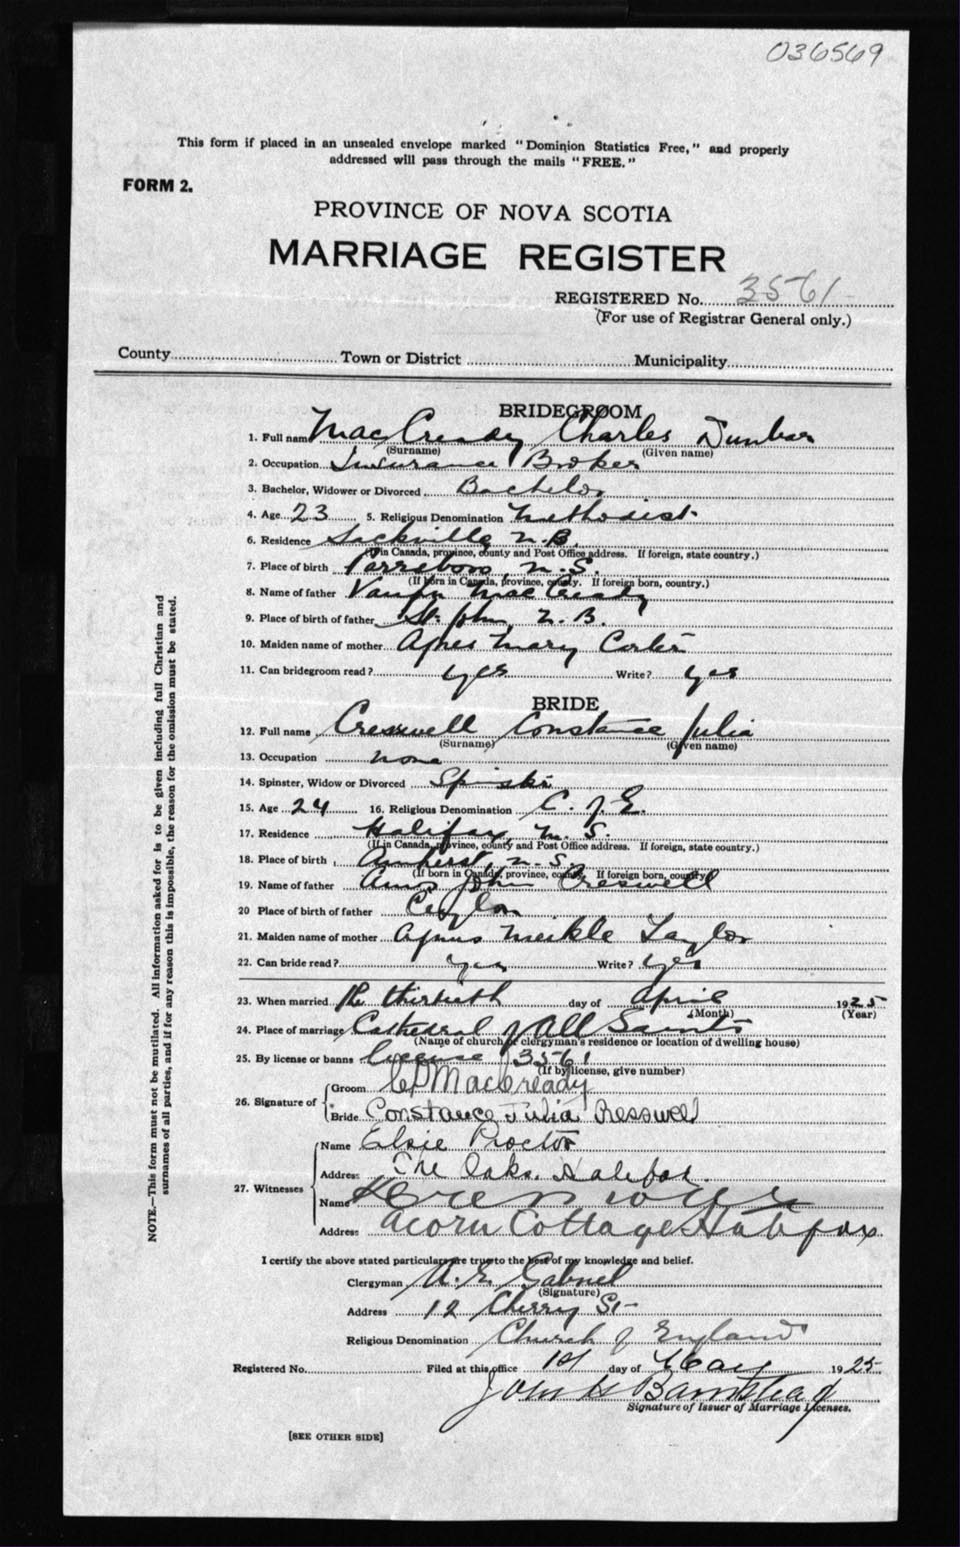 036569
This form if placed in an unsealed envelope marked "Dominion Statistics Free," and properly
addressed will pass through the mails "FREE."
FORM 2.
PROVINCE OF NOVA SCOTIA
MARRIAGE REGISTER
REGISTERED No. 3561
(For use of Registrar General only.)
County Town or District Municipality
BRIDEGROOM
1. Full name MacCready Charles Dunbar
(Surname) (Given name)
2. Occupation Insurance Broker
3. Bachelor, Widower or Divorced Bachelor
4. Age 23 5. Religious Denomination Methodist
6. Residence Sackville N.B.
(If in Canada, province, county and Post Office address. If foreign, state country.)
7. Place of birth Parrsboro, N.S.
(If born in Canada, province, county. If foreign born, country.)
8. Name of father MacCready
9. Place of birth of father St. John, N.B.
10. Maiden name of mother Agnes Mary
11. Can bridegroom read? yes Write? yes
BRIDE
12. Full name Cresswell Constance Julia
(Surname) (Given name)
13. Occupation none
14. Spinster, Widow or Divorced Spinster
15. Age 24 16. Religious Denomination C. of E.
17. Residence Halifax, N.S.
(If in Canada, province, county and Post Office address. If foreign, state country.)
18. Place of birth Amherst, N.S.
(If born in Canada, province, county. If foreign born, country)
19. Name of father John Creswell
20 Place of birth of father Ceylon
21. Maiden name of mother Agnes Meikle Taylor
22. Can bride read? yes Write? yes
23. When married the thirtieth day of April 1925
(Month) (Year)
24. Place of marriage Cathedral of All Saints
(Name of church or clergyman's residence or location of dwelling house)
25. By license or banns License 3561
(If by license, give number)
26. Signature of
Groom CD MacCready
Bride Constance Julia Cresswell
27. Witnesses
Name Elsie Proctor
Address The Oaks. Halifax.
Name
Address Acorn Cottage Halifax.
I certify the above stated particulars are true to the best of my knowledge and belief.
Clergyman A. E. Gabriel
(Signature)
Address 12 Cherry St
Religious Denomination Church of England
Registered No. Filed at this office 1st day of May 1925
John H Barnstead
Signature of Issuer of Marriage Licenses.
[SEE OTHER SIDE]
NOTE.—This form must not be mutilated. All information asked for is to be given including full Christian and
surnames of all parties, and if for any reason this is impossible, the reason for the omission must be stated.